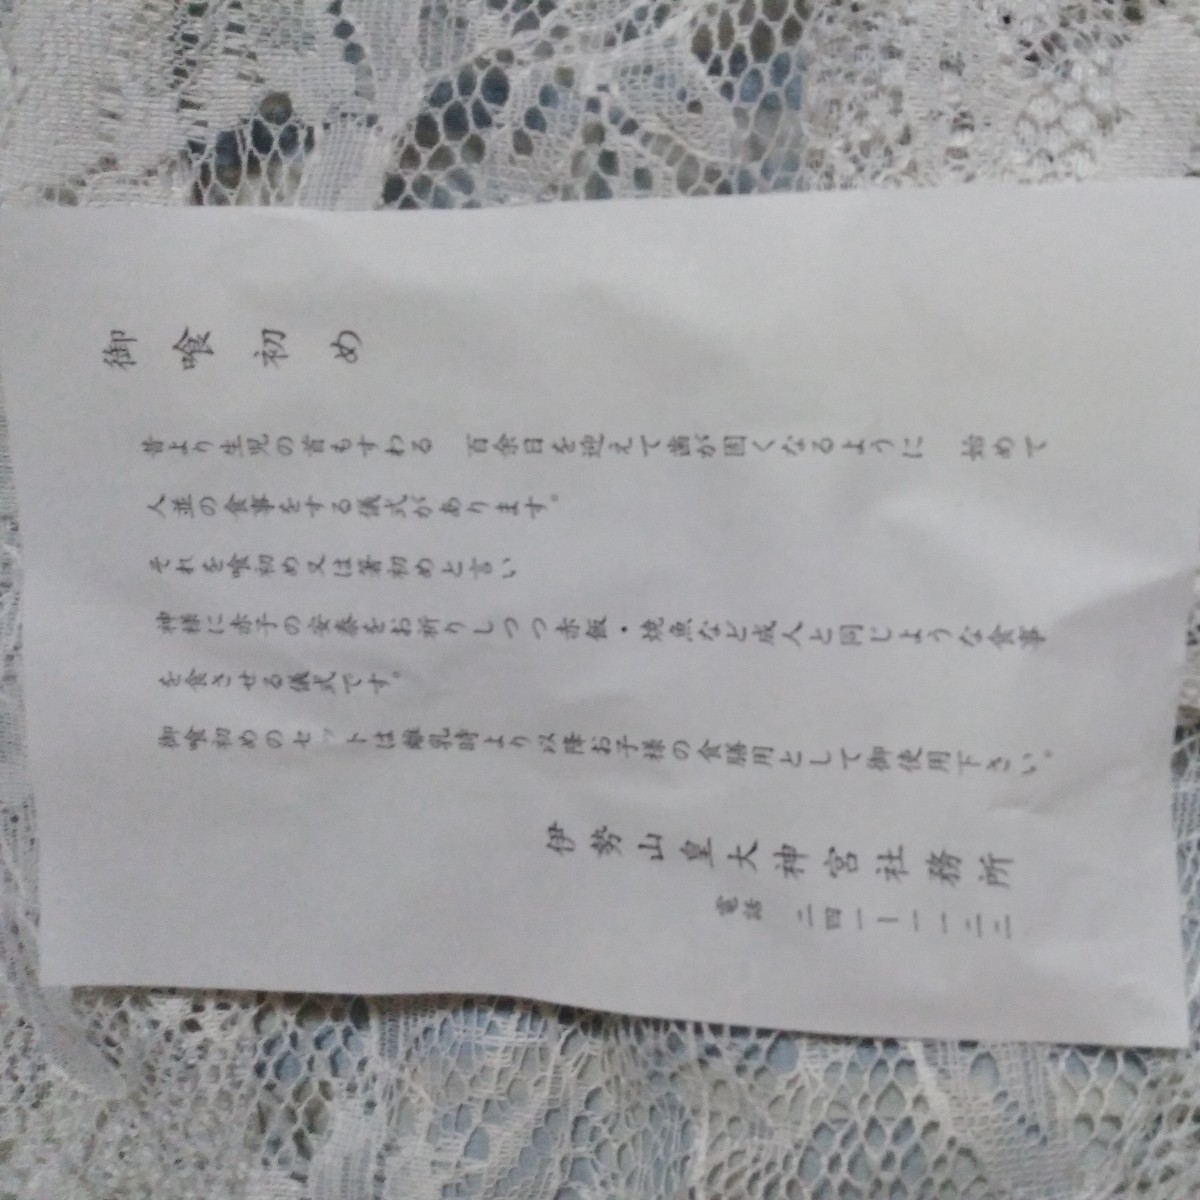 御喰初め
昔より生児の首もすわる　百余日を迎えて歯が固くなるように　始めて
人並の食事をする儀式があります。
それを喰初め又は箸初めと言い
神様に赤子の安泰をお祈りしつつ赤飯・焼魚など成人と同じような食事
を食させる儀式です。
御喰初めのセットは離乳時より以降お子様の食膳用として御使用下さい。
伊勢山皇大神宮社務所
電話　二四一ー一一二二